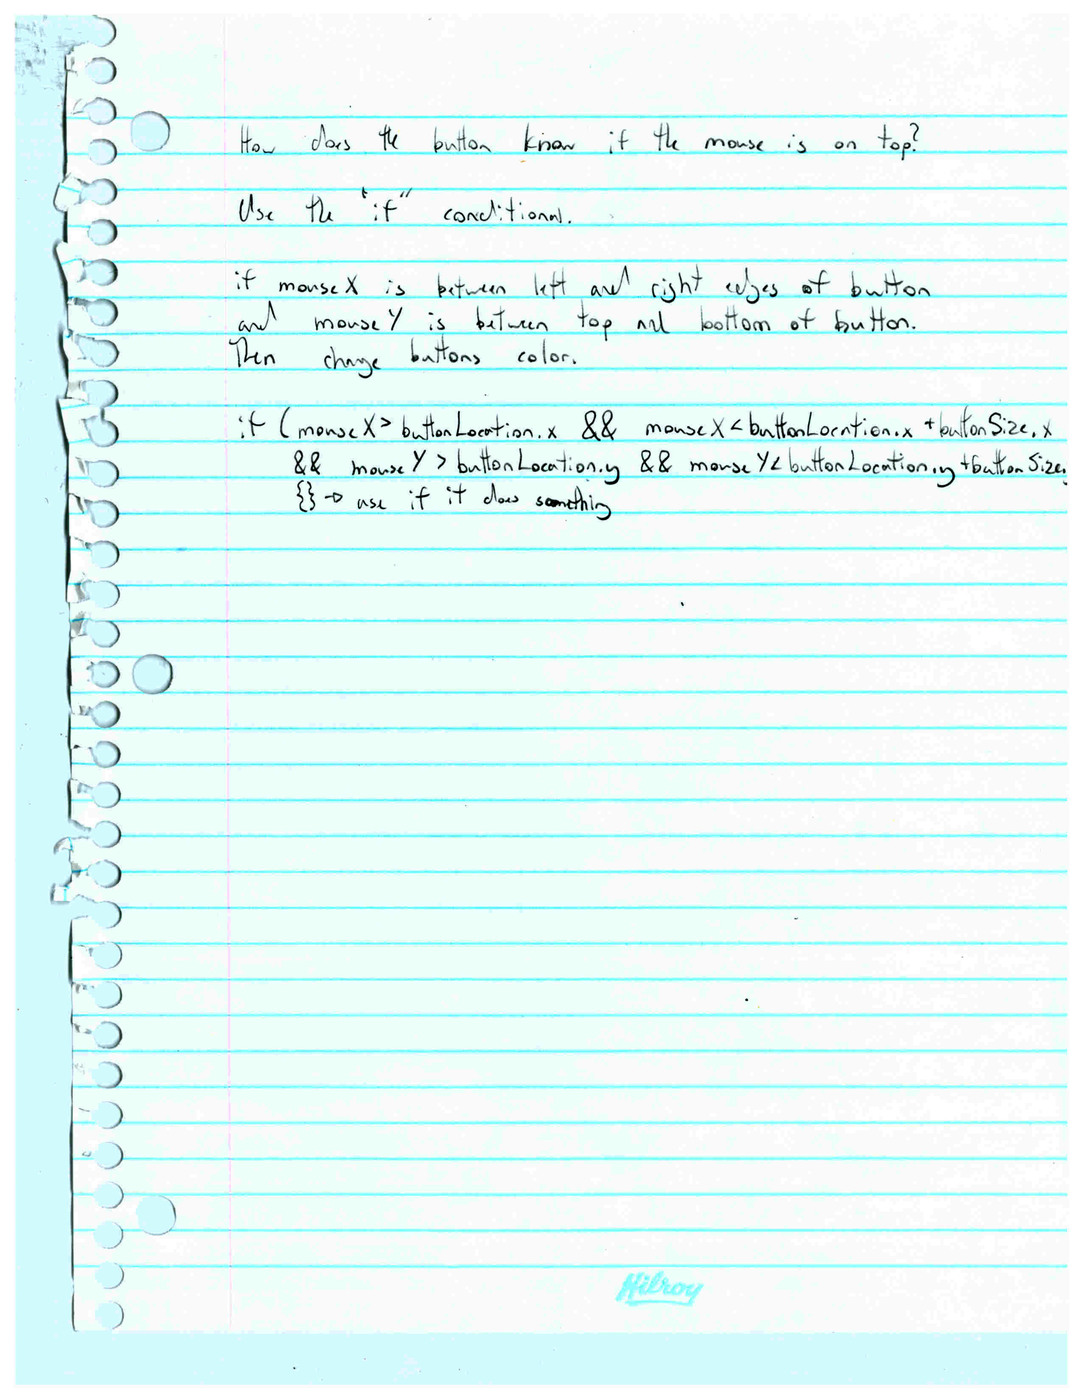 How does the button know if the mouse is on top?
Use the "if" conditional.
if mouseX is between left and right edges of button
and mouseY is between top and bottom of button.
Then change buttons color.
if (mouseX > buttonLocation.x && mouseX < buttonLocation.x + buttonSize.x
&& mouseY > buttonLocation.y && mouseY < buttonLocation.y + buttonSize.
{} → use if it does something
Hilroy